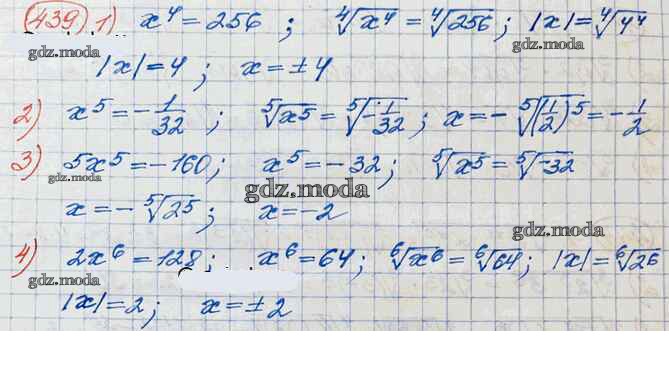 439) 1) x⁴ = 256 ; ⁴√x⁴ = ⁴√256 ; |x| = ⁴√4⁴
gdz.moda gdz.moda gdz.moda
|x| = 4 ; x = ± 4
2) x⁵ = -1/32 ; ⁵√x⁵ = ⁵√-1/32 ; x = - ⁵√(1/2)⁵ = -1/2
3) 5x⁵ = -160 ; x⁵ = -32 ; ⁵√x⁵ = ⁵√-32
gdz.moda gdz.moda
x = - ⁵√2⁵ ; x = -2
gdz.moda
4) 2x⁶ = 128 ; x⁶ = 64 ; ⁶√x⁶ = ⁶√64 ; |x| = ⁶√2⁶
gdz.moda gdz.moda
|x| = 2 ; x = ± 2